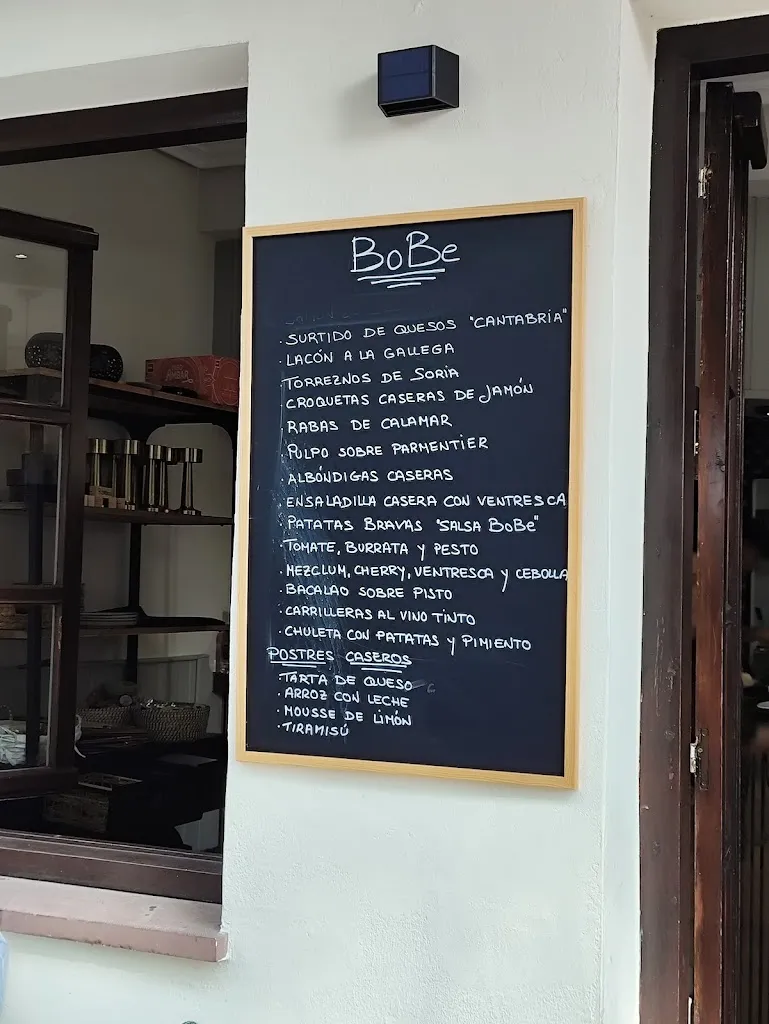 BoBe
· SURTIDO DE QUESOS "CANTABRÍA"
· LACÓN A LA GALLEGA
· TORREZNOS DE SORIA
CROQUETAS CASERAS DE JAMÓN
· RABAS DE CALAMAR
· PULPO SOBRE PARMENTIER
· ALBÓNDIGAS CASERAS
· ENSALADILLA CASERA CON VENTRESCA
· PATATAS BRAVAS "SALSA BOBE"
· TOMATE, BURRATA Y PESTO
· MEZCLUM, CHERRY, VENTRESCA Y CEBOLLA
· BACALAO SOBRE PISTO
· CARRILLERAS AL VINO TINTO
· CHULETA CON PATATAS Y PIMIENTO
POSTRES CASEROS
· TARTA DE QUESO
· ARROZ CON LECHE
· MOUSSE DE LIMÓN
· TIRAMISÚ